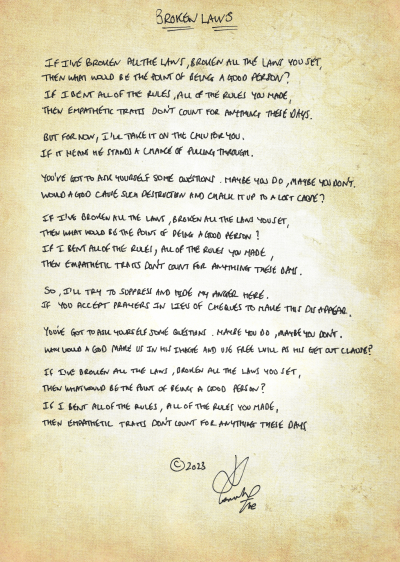 BROKEN LAWS
IF I'VE BROKEN ALL THE LAWS, BROKEN ALL THE LAWS YOU SET,
THEN WHAT WOULD BE THE POINT OF BEING A GOOD PERSON?
IF I BENT ALL OF THE RULES, ALL OF THE RULES YOU MADE,
THEN EMPATHETIC TRAITS DON'T COUNT FOR ANYTHING THESE DAYS.
BUT FOR NOW, I'LL TAKE IT ON THE CHIN FOR YOU.
IF IT MEANS HE STANDS A CHANCE OF PULLING THROUGH.
YOU'VE GOT TO ASK YOURSELF SOME QUESTIONS. MAYBE YOU DO, MAYBE YOU DON'T.
WOULD A GOD CAUSE SUCH DESTRUCTION AND CHALK IT UP TO A LOST CAUSE?
IF I'VE BROKEN ALL THE LAWS, BROKEN ALL THE LAWS YOU SET,
THEN WHAT WOULD BE THE POINT OF BEING A GOOD PERSON?
IF I BENT ALL OF THE RULES, ALL OF THE RULES YOU MADE,
THEN EMPATHETIC TRAITS DON'T COUNT FOR ANYTHING THESE DAYS.
SO, I'LL TRY TO SUPPRESS AND HIDE MY ANGER HERE.
IF YOU ACCEPT PRAYERS IN LIEU OF CHEQUES TO MAKE THIS DISAPPEAR.
YOU'VE GOT TO ASK YOURSELF SOME QUESTIONS. MAYBE YOU DO, MAYBE YOU DON'T.
WHY WOULD A GOD MAKE US IN HIS IMAGE AND USE FREE WILL AS HIS GET OUT CLAUSE?
IF I'VE BROKEN ALL THE LAWS, BROKEN ALL THE LAWS YOU SET,
THEN WHAT WOULD BE THE POINT OF BEING A GOOD PERSON?
IF I BENT ALL OF THE RULES, ALL OF THE RULES YOU MADE,
THEN EMPATHETIC TRAITS DON'T COUNT FOR ANYTHING THESE DAYS
©2023